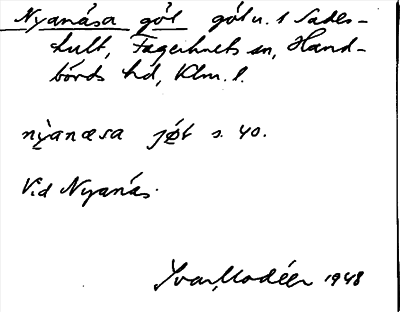 Nyanåsa göl göl u. 1 Sades-
hult, Fagerhults sn, Hand-
börds hd, Klm. l.
nỳanæsa jøt s. 40.
Vid Nyanäs.
Ivar Modéer 1948